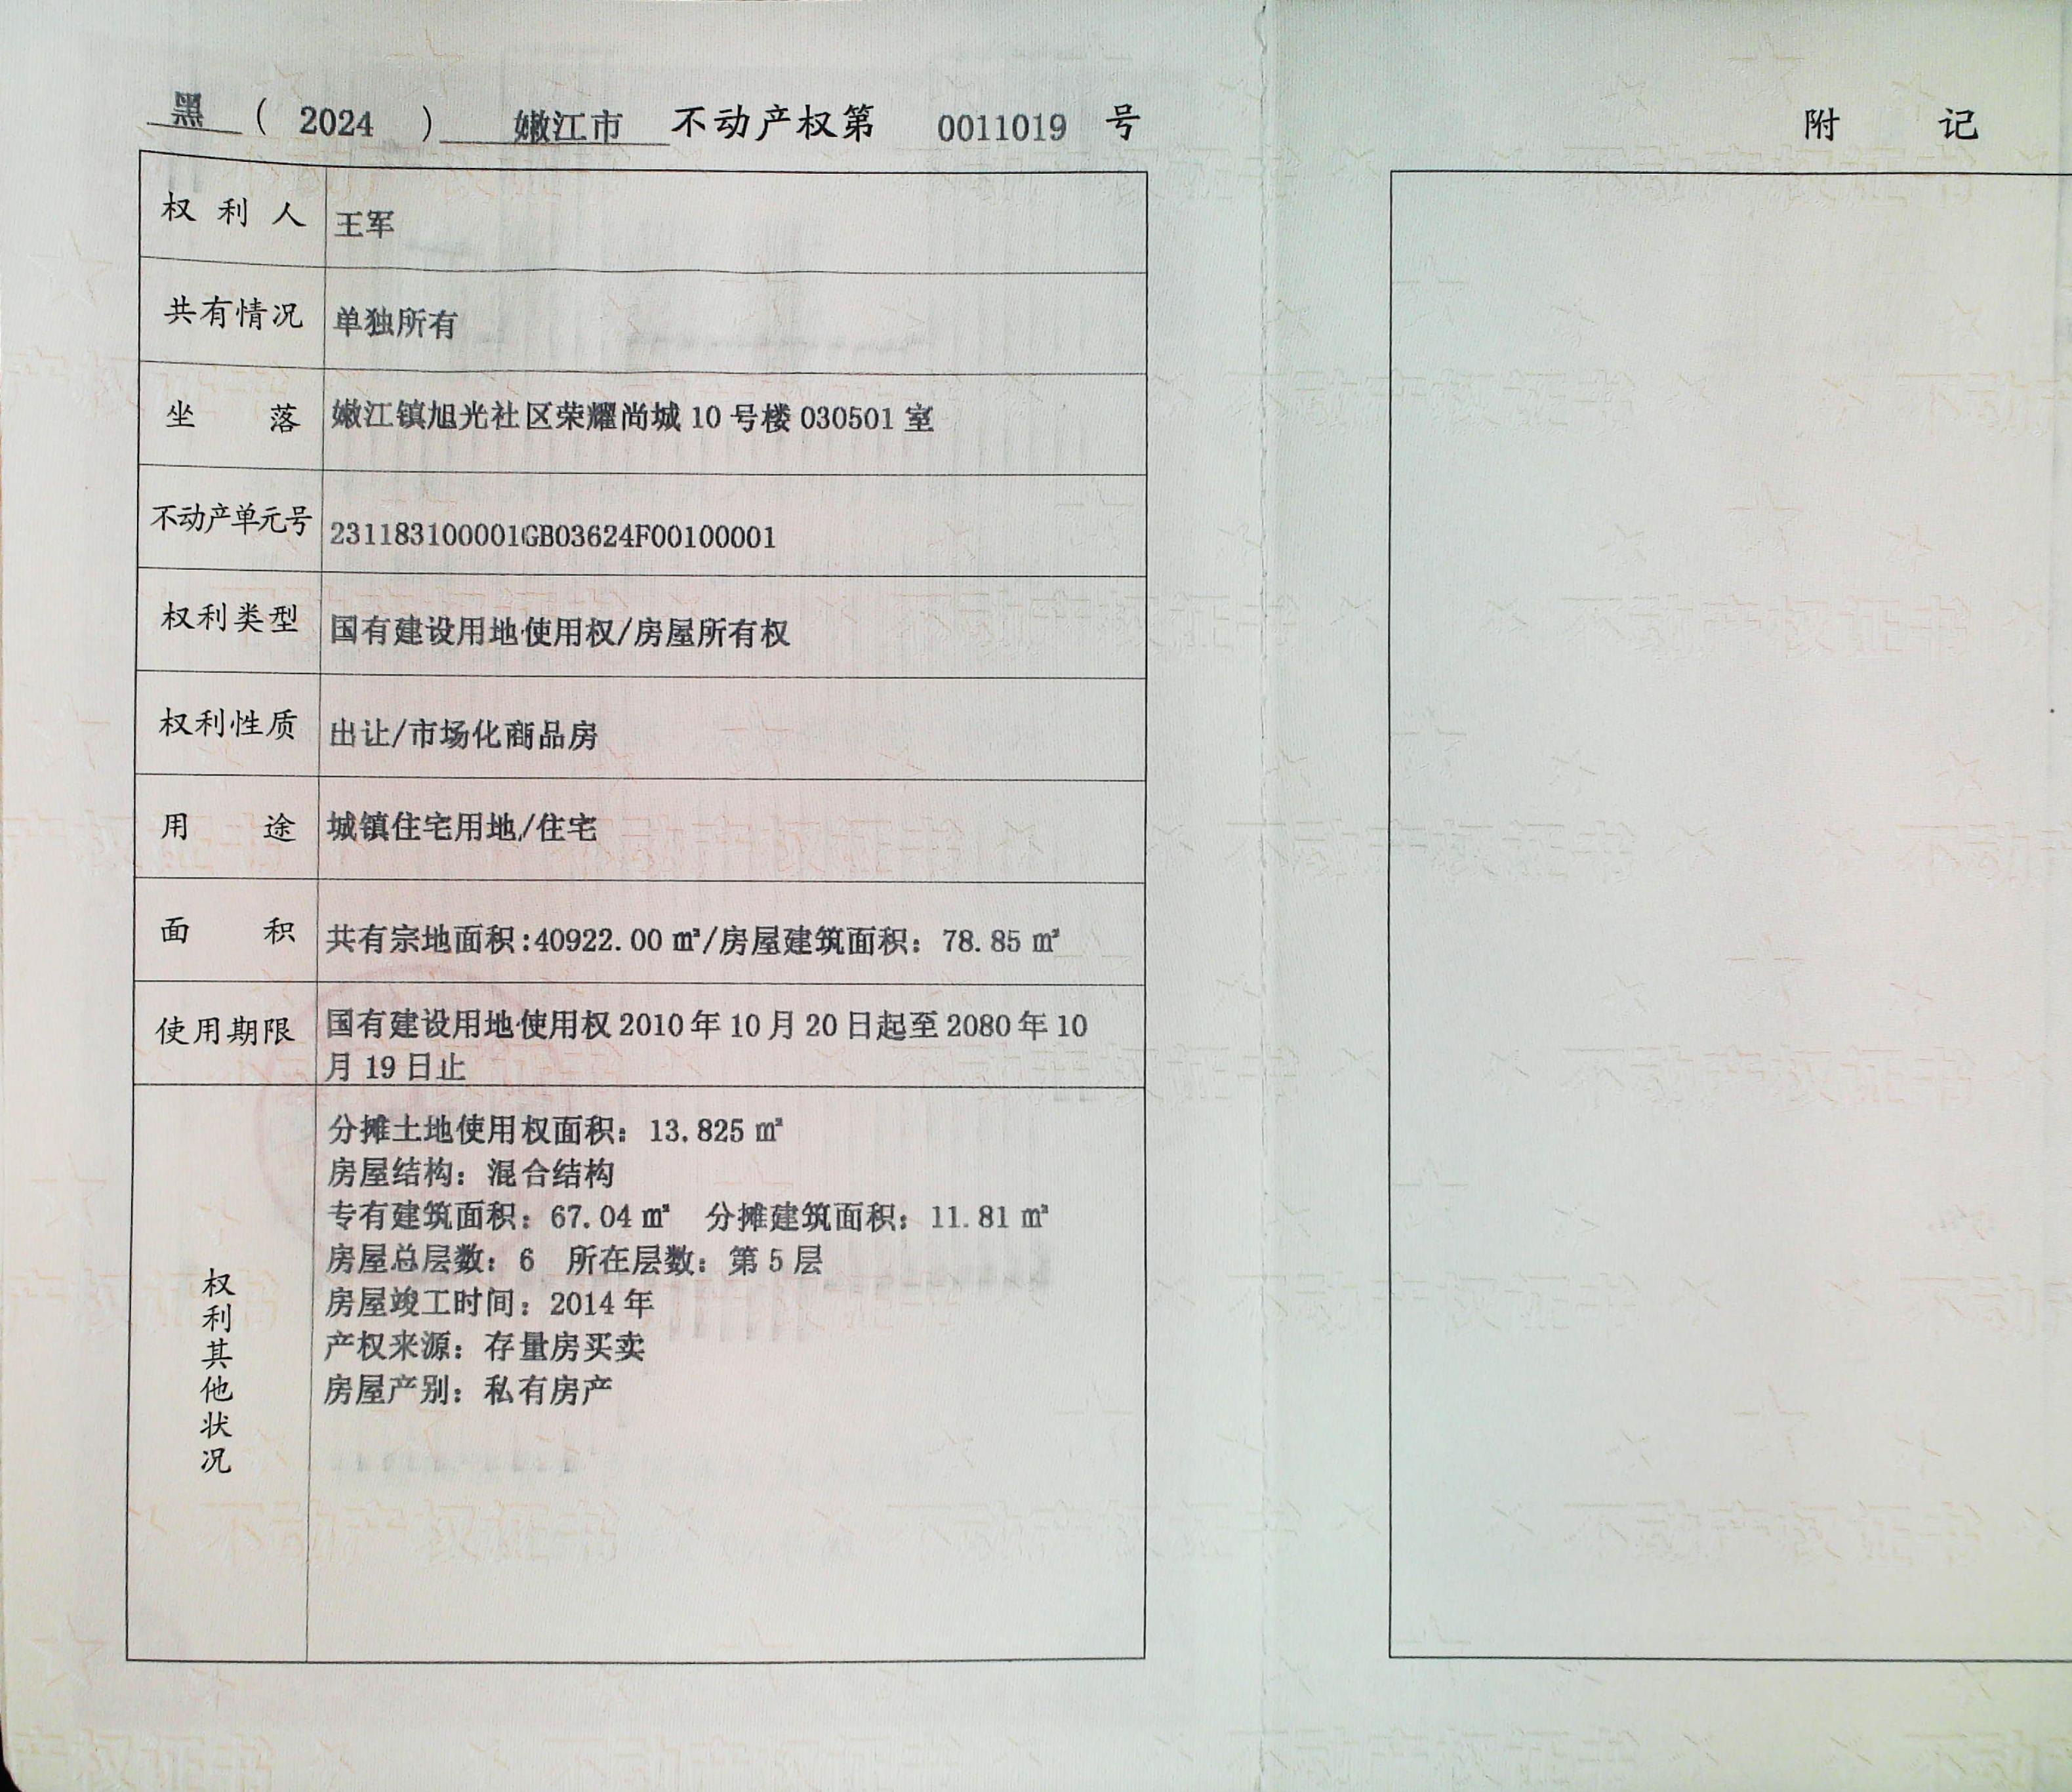 黑（2024）嫩江市 不动产权第 0011019 号
附 记
权利人 王军
共有情况 单独所有
坐落 嫩江镇旭光社区荣耀尚城 10 号楼 030501 室
不动产单元号 231183100001GB03624F00100001
权利类型 国有建设用地使用权/房屋所有权
权利性质 出让/市场化商品房
用途 城镇住宅用地/住宅
面积 共有宗地面积:40922.00 ㎡/房屋建筑面积：78.85 ㎡
使用期限 国有建设用地使用权 2010 年 10 月 20 日起至 2080 年 10
月 19 日止
权利其他状况
分摊土地使用权面积：13.825 ㎡
房屋结构：混合结构
专有建筑面积：67.04 ㎡ 分摊建筑面积：11.81 ㎡
房屋总层数：6 所在层数：第 5 层
房屋竣工时间：2014 年
产权来源：存量房买卖
房屋产别：私有房产